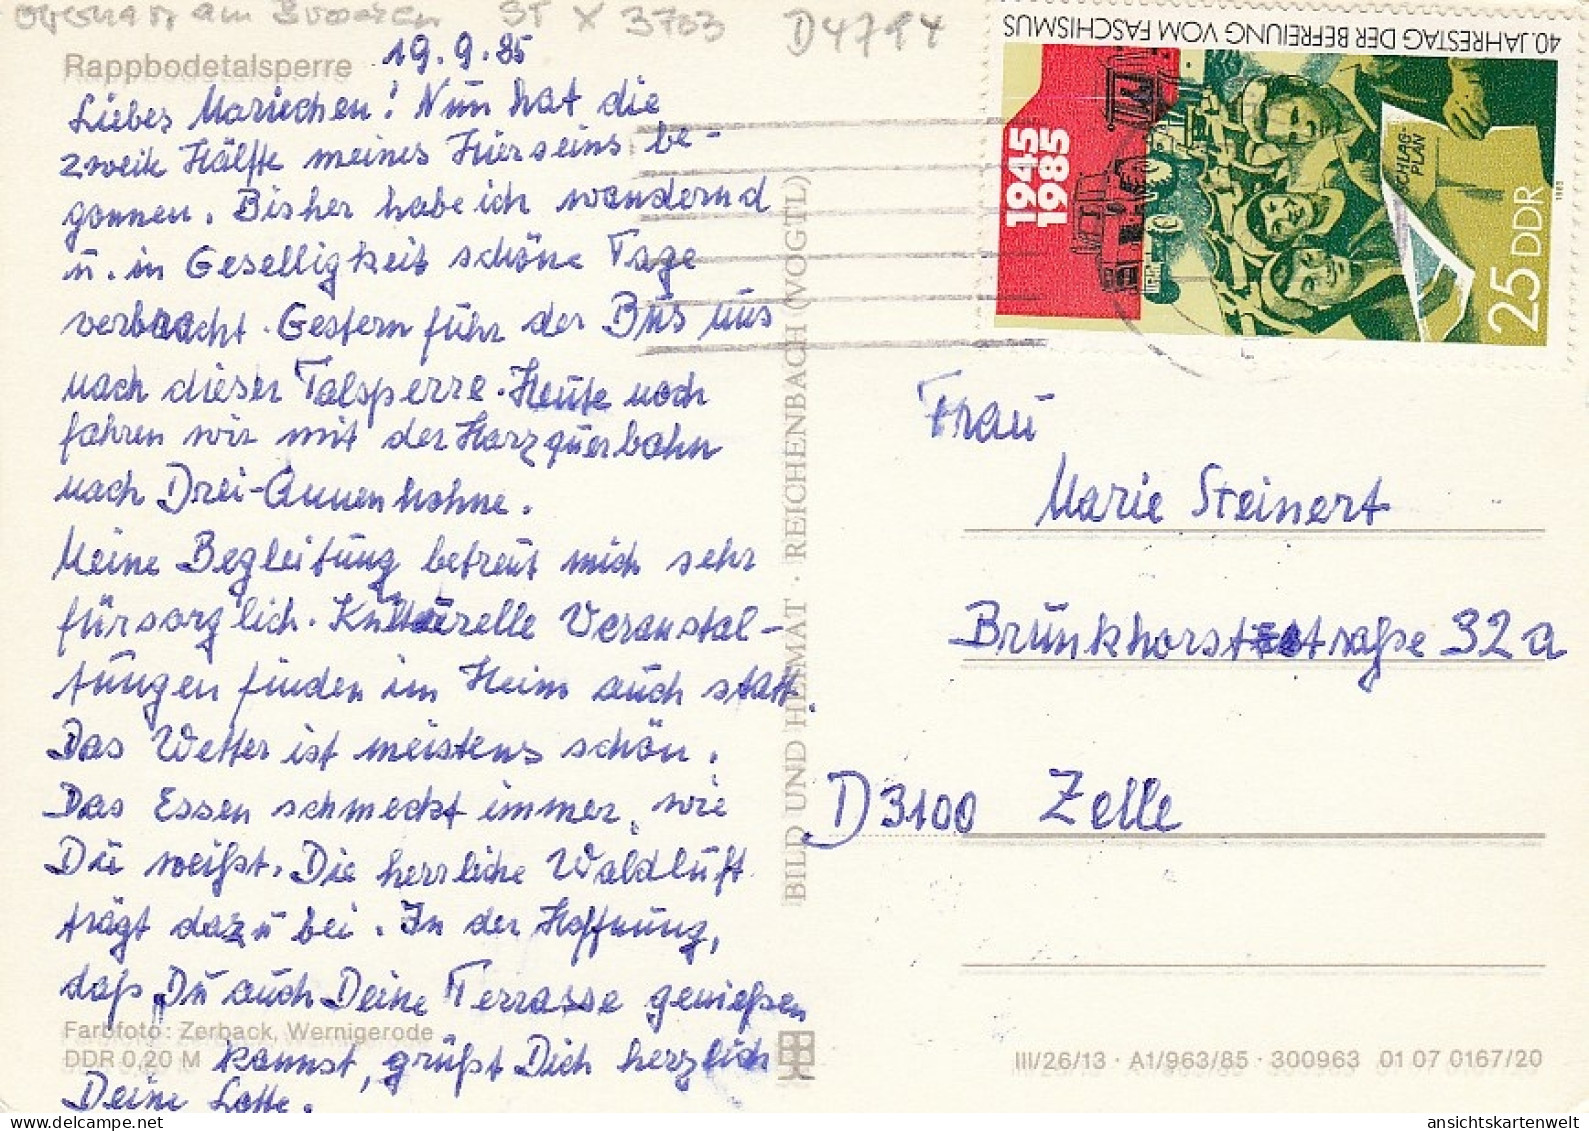 am Brocken ST X 3703 D4794
Rappbodetalsperre
19.9.85
Liebes Mariechen! Nun hat die
zweite Hälfte meines Hierseins be-
gonnen. Bisher habe ich wandernd
u. in Geselligkeit schöne Tage
verbracht. Gestern fuhr der Bus uns
nach dieser Talsperre. Heute noch
fahren wir mit der Harzquerbahn
nach Drei-Annenhohne.
Meine Begleitung betreut mich sehr
fürsorglich. Kulturelle Veranstal-
tungen finden im Heim auch statt.
Das Wetter ist meistens schön.
Das Essen schmeckt immer, wie
Du weißt. Die herrliche Waldluft
trägt dazu bei. In der Hoffnung,
daß Du auch Deine Terrasse genießen
kannst, grüßt Dich herzlich
Deine Lotte.
Farbfoto: Zerback, Wernigerode
DDR 0,20 M
BILD UND HEIMAT · REICHENBACH (VOGTL)
40. JAHRESTAG DER BEFREIUNG VOM FASCHISMUS
1945
1985
SCHLAG-
PLAN
25 DDR
1985
Frau
Marie Steinert
Brunkhorststraße 32a
D3100 Zelle
III/26/13 · A1/963/85 · 300963 01 07 0167/20
ansichtskartenwelt